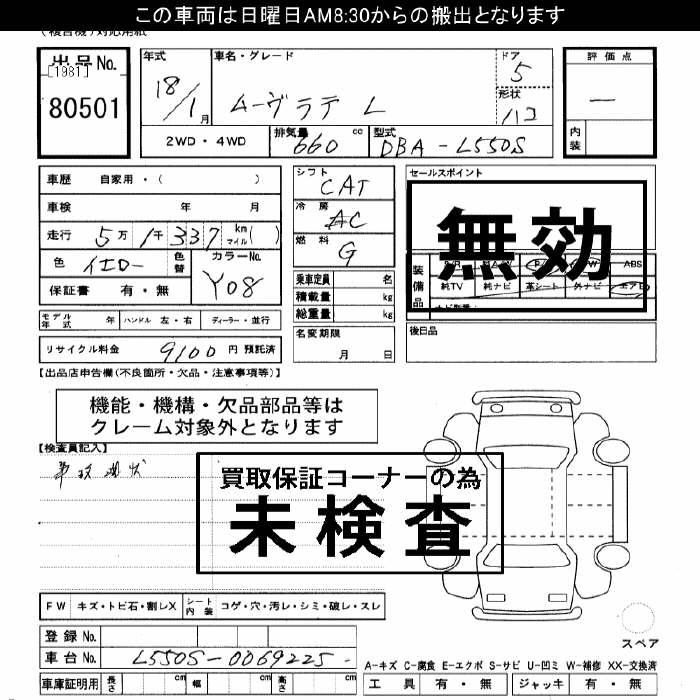 この車両は日曜日AM8:30からの搬出となります
出品No.
[1981]
80501
年式
18/1月
車名・グレード
ムーヴラテ L
ドア
5
形状
ハコ
評価点
—
内装
2WD・4WD
排気量 660 cc
型式 DBA-L550S
車歴 自家用・( )
車検 年 月
走行 5万1千337 km マイル( )
色 イエロー 色替
カラーNo. Y08
保証書 有・無
シフト CAT
冷房 AC
燃料 G
乗車定員 名
積載量 kg
総重量 kg
セールスポイント
無効
装備品
ABS
純TV 純ナビ 革シート 外ナビ エアB
モデル年式 年 ハンドル 左・右 ディーラー・並行
リサイクル料金 9100 円 預託済
名変期限
月 日
後日品
【出品店申告欄(不良箇所・欠品・注意事項等)】
機能・機構・欠品部品等は
クレーム対象外となります
【検査員記入】
現状
買取保証コーナーの為
未検査
FW キズ・トビ石・割レX シート内装 コゲ・穴・汚レ・シミ・破レ・スレ
スペア
登録No.
車台No. L550S-0069225
A-キズ C-腐食 E-エクボ S-サビ U-凹ミ W-補修 XX-交換済
車庫証明用 長さ cm 幅 cm 高さ cm
工具 有・無 ジャッキ 有・無